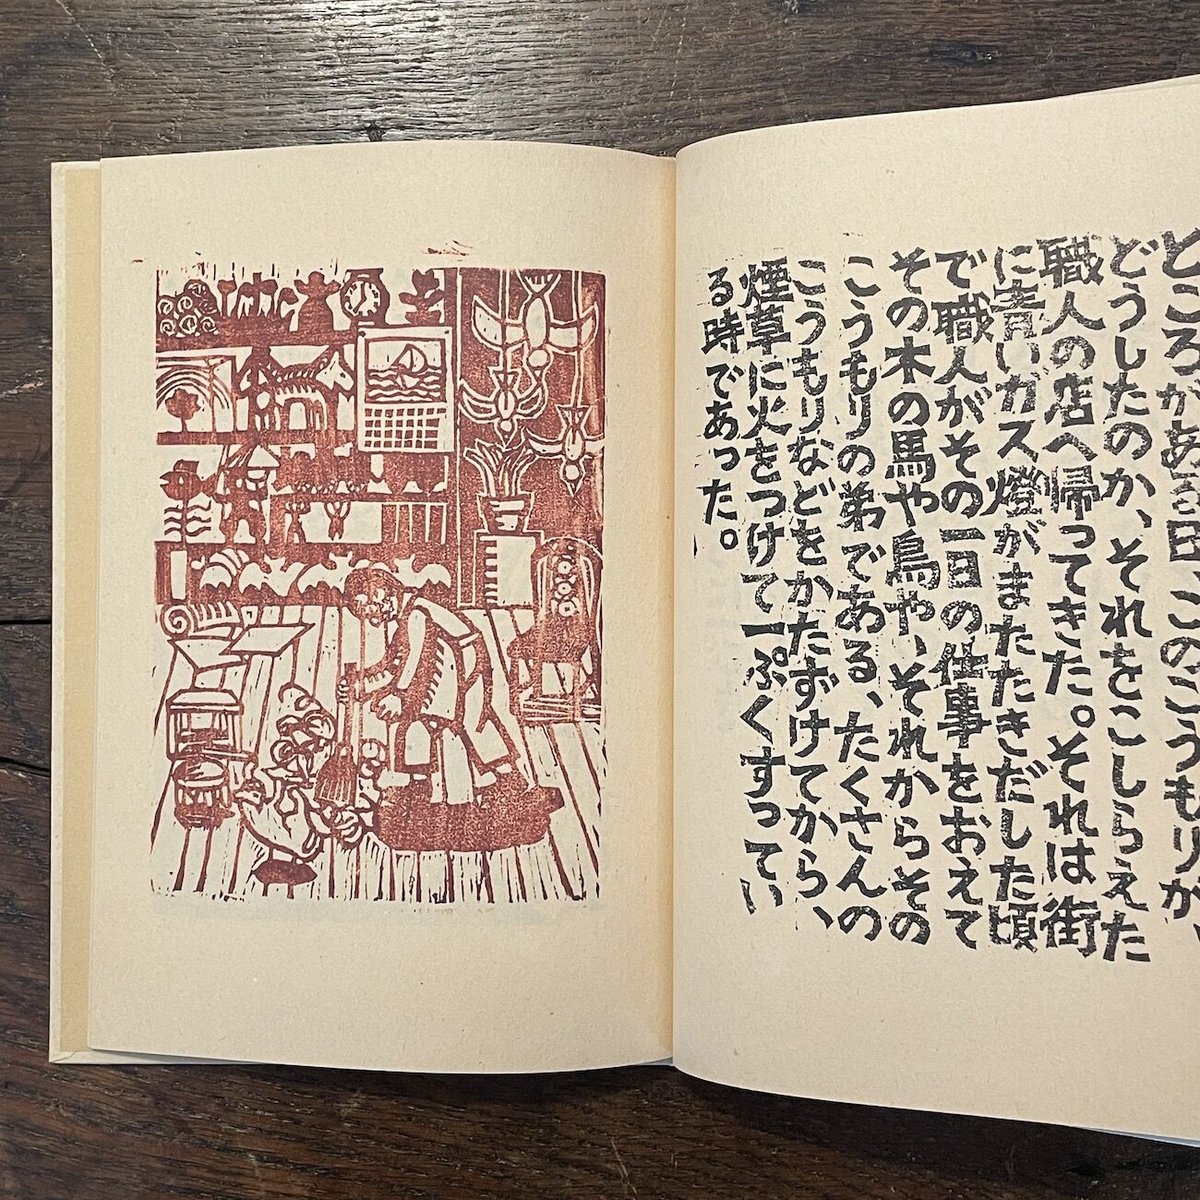 ところがある日、このこうもりが、
どうしたのか、それをこしらえた
職人の店へ帰ってきた。それは街
に青いガス燈がまたたきだした頃
で職人がその一日の仕事をおえて
その木の馬や鳥や、それからその
こうもりの弟である、たくさんの
こうもりなどをかたずけてから、
煙草に火をつけて一ぷくすってい
る時であった。